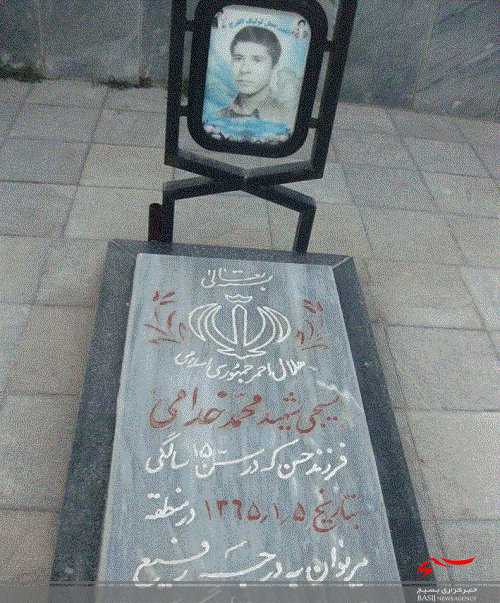 بسمه تعالی
هلال احمر جمهوری اسلامی
بسیجی شهید محمد خدامی
فرزند حسن که در سن ۱۵ سالگی
بتاریخ ۱۳۶۵/۱/۵ در منطقه
مریوان به درجه رفیع
خبرگزاری بسیج
BASIJ NEWS AGENCY